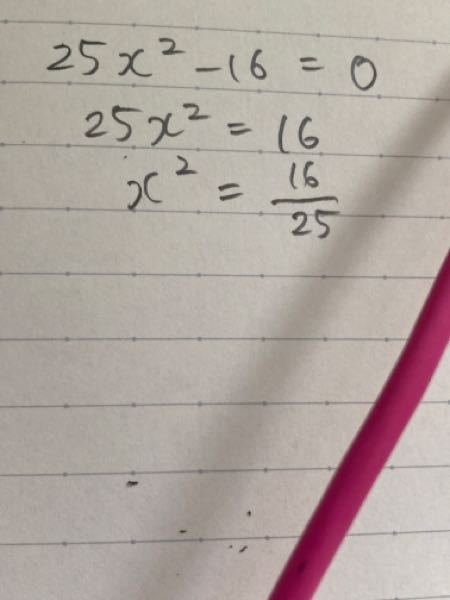 25x² - 16 = 0
25x² = 16
x² = 16/25